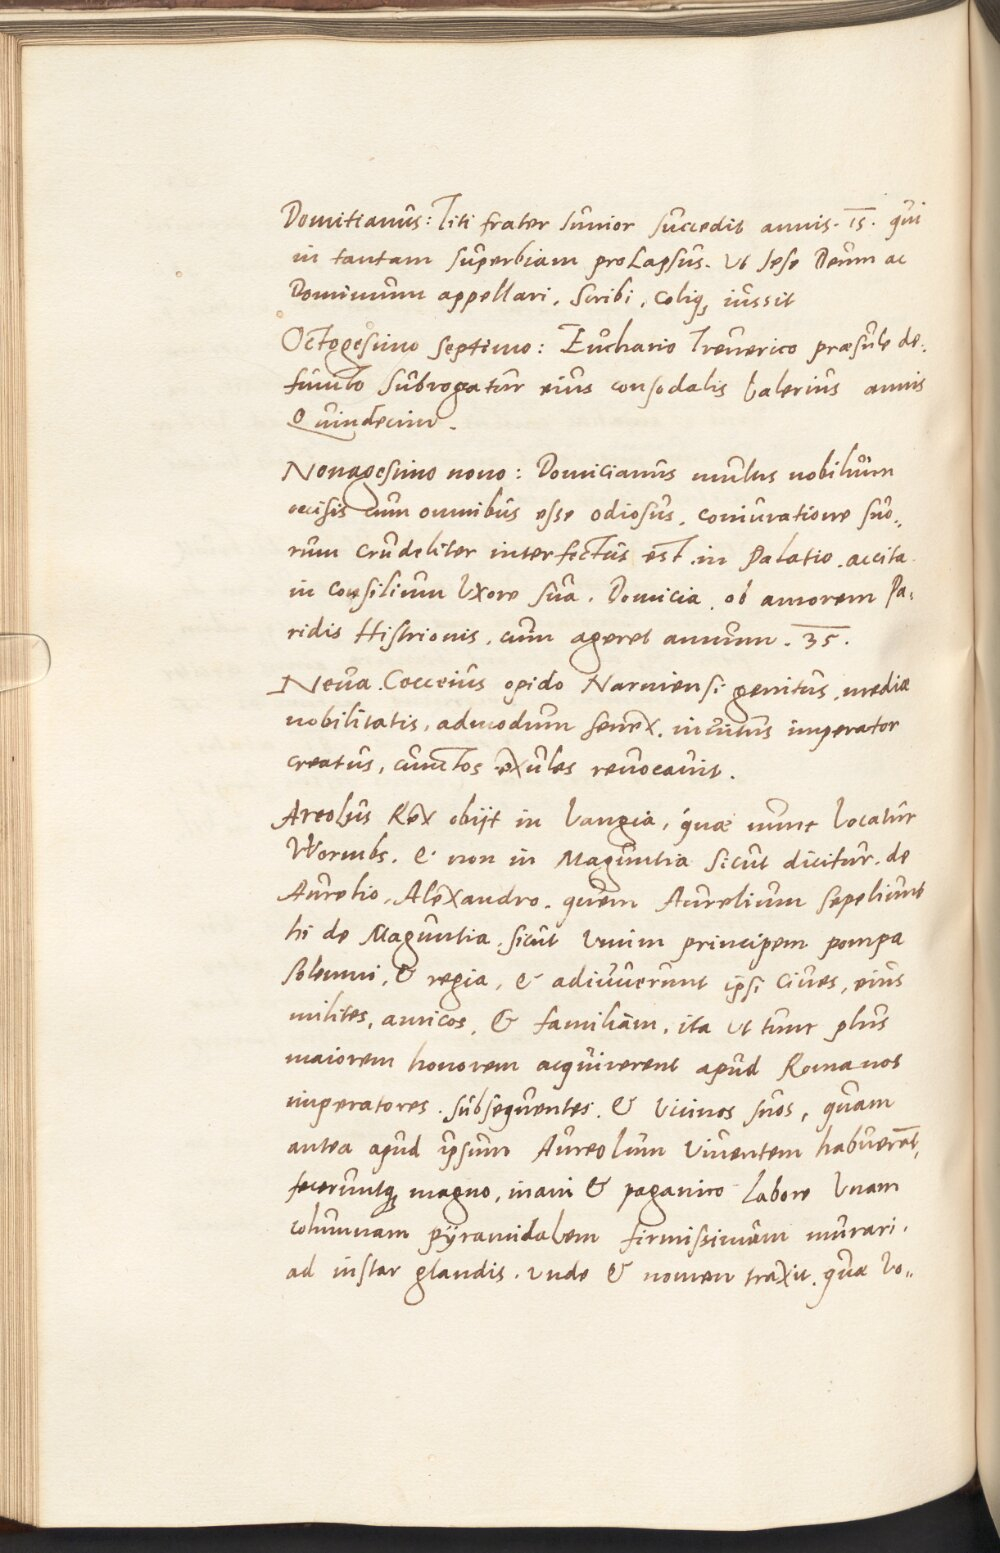 Domitianus: Titi frater Iunior succedit annis. 15. qui
in tantam superbiam prolapsus. Ut sese Deum ac
Dominum appellari, scribi, coliq; iussit
Octogesimo septimo: Euchario Treuerico præsule de:
functo subrogatur eius consodalis Valerius annis
Quindecim.
Nonagesimo nono: Domicianus multus nobilium
occisis cum omnibus esse odiosus, coniuratione suo,,
rum crudeliter interfectus est. in Palatio. accita
in consilium Uxore sua. Domicia. ob amorem Pa,
ridis Histrionis, cum ageret annum. 35.
Neua. Cocceius opido Narniensi genitus, mediæ
nobilitatis, admodum senex, inuitus imperator
creatus, cunctos exules reuocauit.
Areolus Rex obijt in Vangia, quæ nunc Vocatur
Wormbs. & non in Maguntia sicut dicitur. de
Aurelio, Alexandro. quem Aurelium sepeliunt
hi de Maguntia. sicut Vnum principem pompa
solemni, & regia, & adiuuerunt ipsi ciues, eius
milites, amicos, & familiam, ita ut tunc plus
maiorem honorem acquirerent apud Romanos
imperatores. subsequentes. & Vicinos suos, quam
antea apud ipsum Aureolum Viuentem habuerāt,
feceruntq; magno, inani & paganico labore Vnam
columnam pÿramidalem firmissimam murari.
ad instar glandis. Vnde & nomen traxit. quæ Vo,,